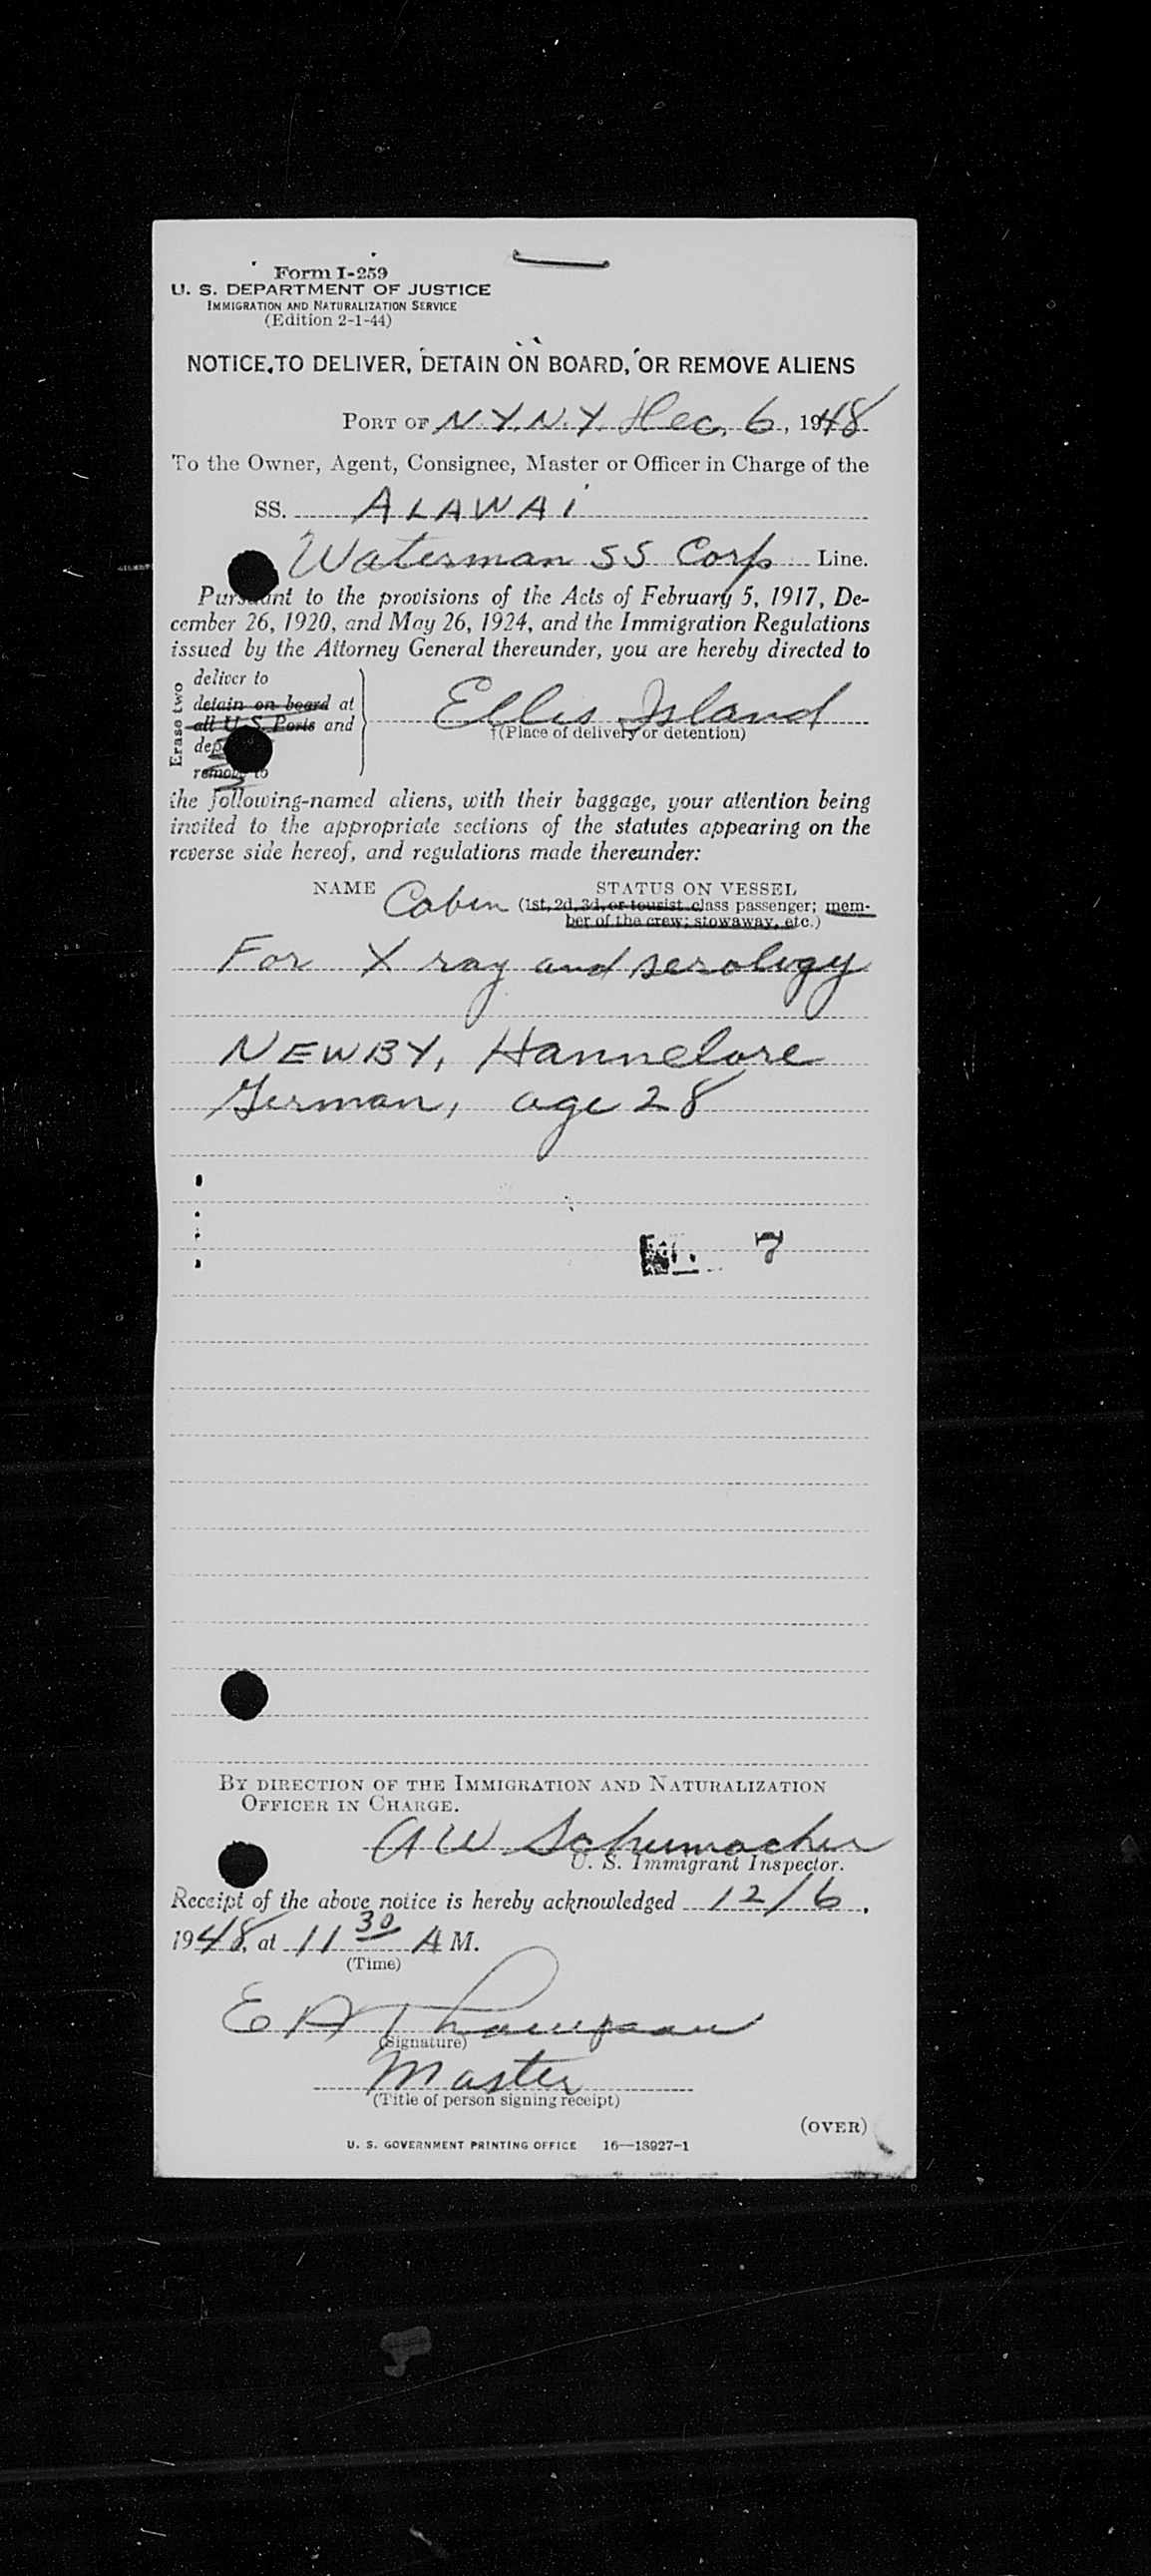 Form I-259
U. S. DEPARTMENT OF JUSTICE
IMMIGRATION AND NATURALIZATION SERVICE
(Edition 2-1-44)
NOTICE TO DELIVER, DETAIN ON BOARD, OR REMOVE ALIENS
PORT OF N.Y.N.Y. Dec. 6, 1948
To the Owner, Agent, Consignee, Master or Officer in Charge of the
SS. ALAWAi
Waterman SS Corp Line.
Pursuant to the provisions of the Acts of February 5, 1917, De-
cember 26, 1920, and May 26, 1924, and the Immigration Regulations
issued by the Attorney General thereunder, you are hereby directed to
Erase two
deliver to
detain on board at
all U. S. Ports and
remove to
Ellis Island
†(Place of delivery or detention)
the following-named aliens, with their baggage, your attention being
invited to the appropriate sections of the statutes appearing on the
reverse side hereof, and regulations made thereunder:
NAME Cabin STATUS ON VESSEL
(1st, 2d, 3d, or tourist class passenger; mem-
ber of the crew; stowaway, etc.)
For X ray and serology
NEWBY, Hannelore
German, age 28
7
BY DIRECTION OF THE IMMIGRATION AND NATURALIZATION
OFFICER IN CHARGE.
A W Schumacher
U. S. Immigrant Inspector.
Receipt of the above notice is hereby acknowledged 12/6,
1948, at 11 30 A M.
(Time)
E A Thompson
(Signature)
Master
(Title of person signing receipt)
(OVER)
U. S. GOVERNMENT PRINTING OFFICE 16—18927-1